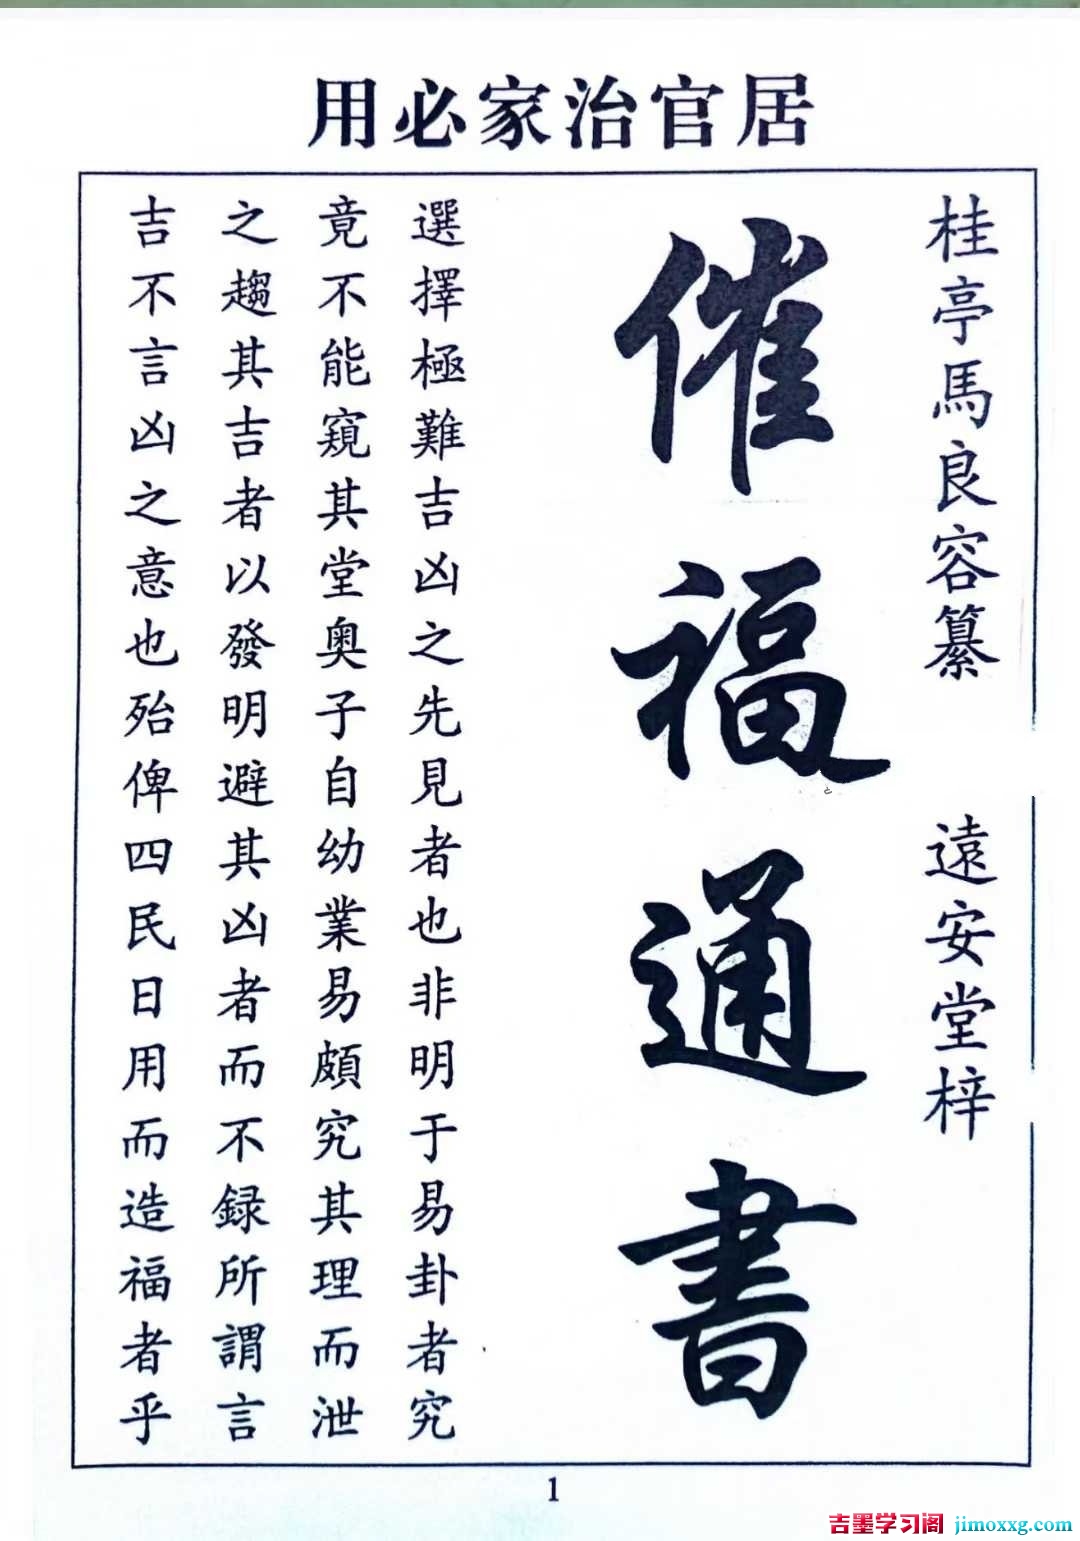 居官治家必用
桂亭馬良容纂
遠安堂梓
催福通書
選擇極難吉凶之先見者也非明于易卦者究
竟不能窺其堂奧子自幼業易頗究其理而泄
之趨其吉者以發明避其凶者而不録所謂言
吉不言凶之意也殆俾四民日用而造福者乎
1
吉墨学习阁 jimoxxg.com